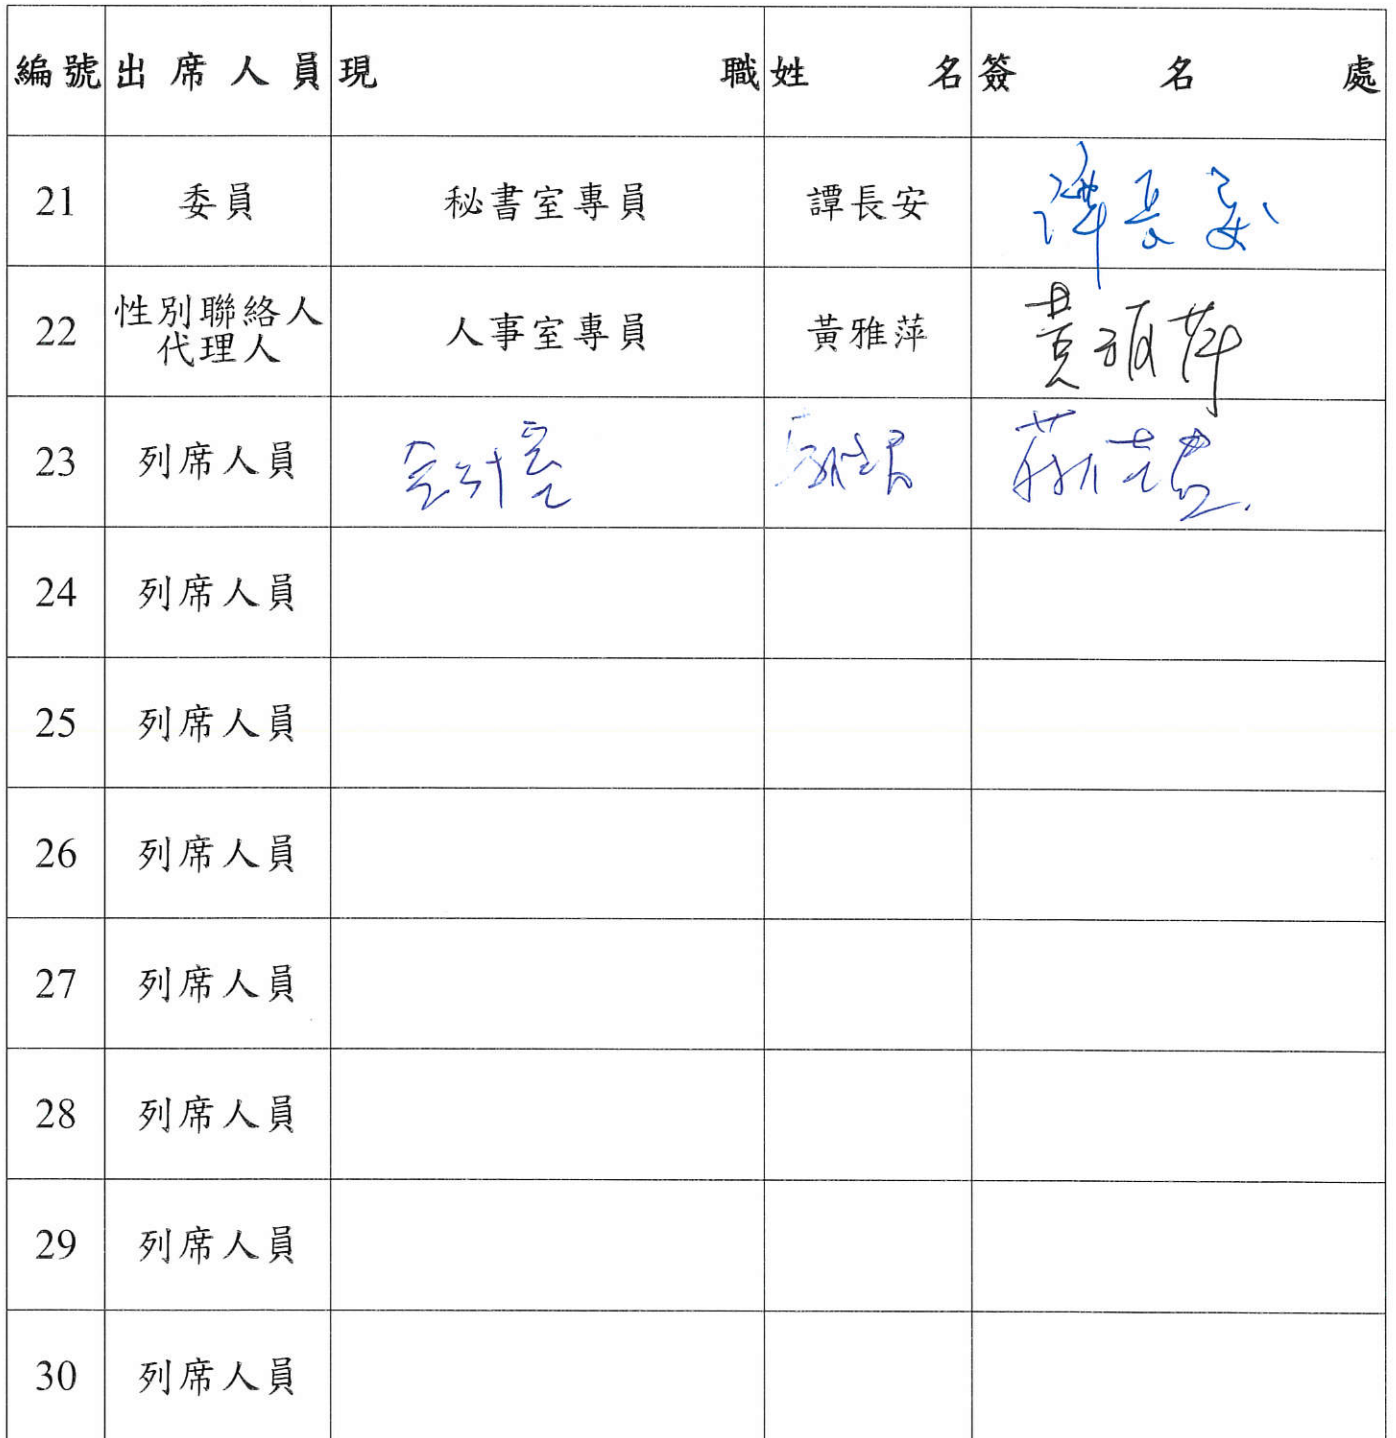 編號 出席人員 現職 姓名 簽名處
21 委員 秘書室專員 譚長安 譚長安
22 性別聯絡人代理人 人事室專員 黃雅萍 黃雅萍
23 列席人員 會計室
24 列席人員
25 列席人員
26 列席人員
27 列席人員
28 列席人員
29 列席人員
30 列席人員